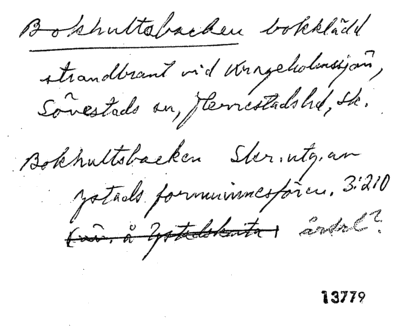 Bokhultsbacken bokklädd
strandbrant vid Krageholmssjön,
Sövestads sn, Herrestads hd, Sk.
Bokhultsbacken Skr. utg. av
Ystads fornminnesfören. 3:210
årtal?
13779